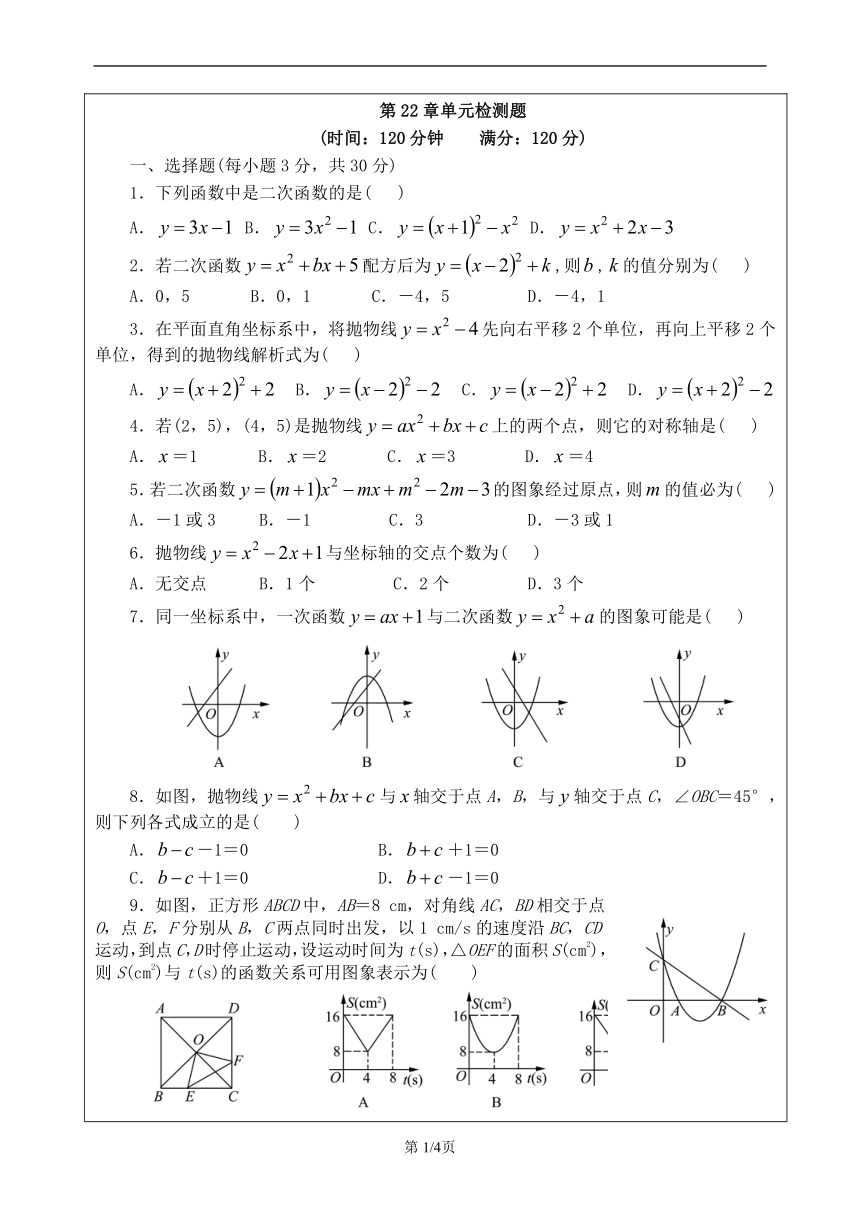 第22章单元检测题
(时间:120分钟 满分:120分)
一、选择题(每小题3分,共30分)
1．下列函数中是二次函数的是( )
A．y=3x−1 B．y=3x²−1 C．y=(x+1)²−x² D．y=x²+2x−3
2．若二次函数y=x²+bx+5配方后为y=(x−2)²+k,则b,k的值分别为( )
A．0,5 B．0,1 C．－4,5 D．－4,1
3．在平面直角坐标系中，将抛物线y=x²−4先向右平移2个单位，再向上平移2个
单位，得到的抛物线解析式为( )
A．y=(x+2)²+2 B．y=(x−2)²−2 C．y=(x−2)²+2 D．y=(x+2)²−2
4．若(2,5),(4,5)是抛物线y=ax²+bx+c上的两个点，则它的对称轴是( )
A．x=1 B．x=2 C．x=3 D．x=4
5．若二次函数y=(m+1)x²−mx+m²−2m−3的图象经过原点,则m的值必为( )
A．－1或3 B．－1 C．3 D．－3或1
6．抛物线y=x²−2x+1与坐标轴的交点个数为( )
A．无交点 B．1个 C．2个 D．3个
7．同一坐标系中，一次函数y=ax+1与二次函数y=x²+a的图象可能是( )
y y y y
O x O x O x O x
A B C D
8．如图，抛物线y=x²+bx+c与x轴交于点A，B，与y轴交于点C，∠OBC＝45°，
则下列各式成立的是( )
A．b−c－1＝0 B．b+c＋1＝0
C．b−c＋1＝0 D．b+c－1＝0
9．如图，正方形ABCD中，AB＝8 cm，对角线AC，BD相交于点
O，点E，F分别从B，C两点同时出发，以1 cm/s的速度沿BC，CD
运动,到点C,D时停止运动,设运动时间为t(s),△OEF的面积S(cm²),
则S(cm²)与t(s)的函数关系可用图象表示为( )
y
C
O A B x
A D
O
F
B E C
S(cm²) S(cm²) S(
16 16 16
8 8 8
O 4 8 t(s) O 4 8 t(s) O
A B
第 1/4页